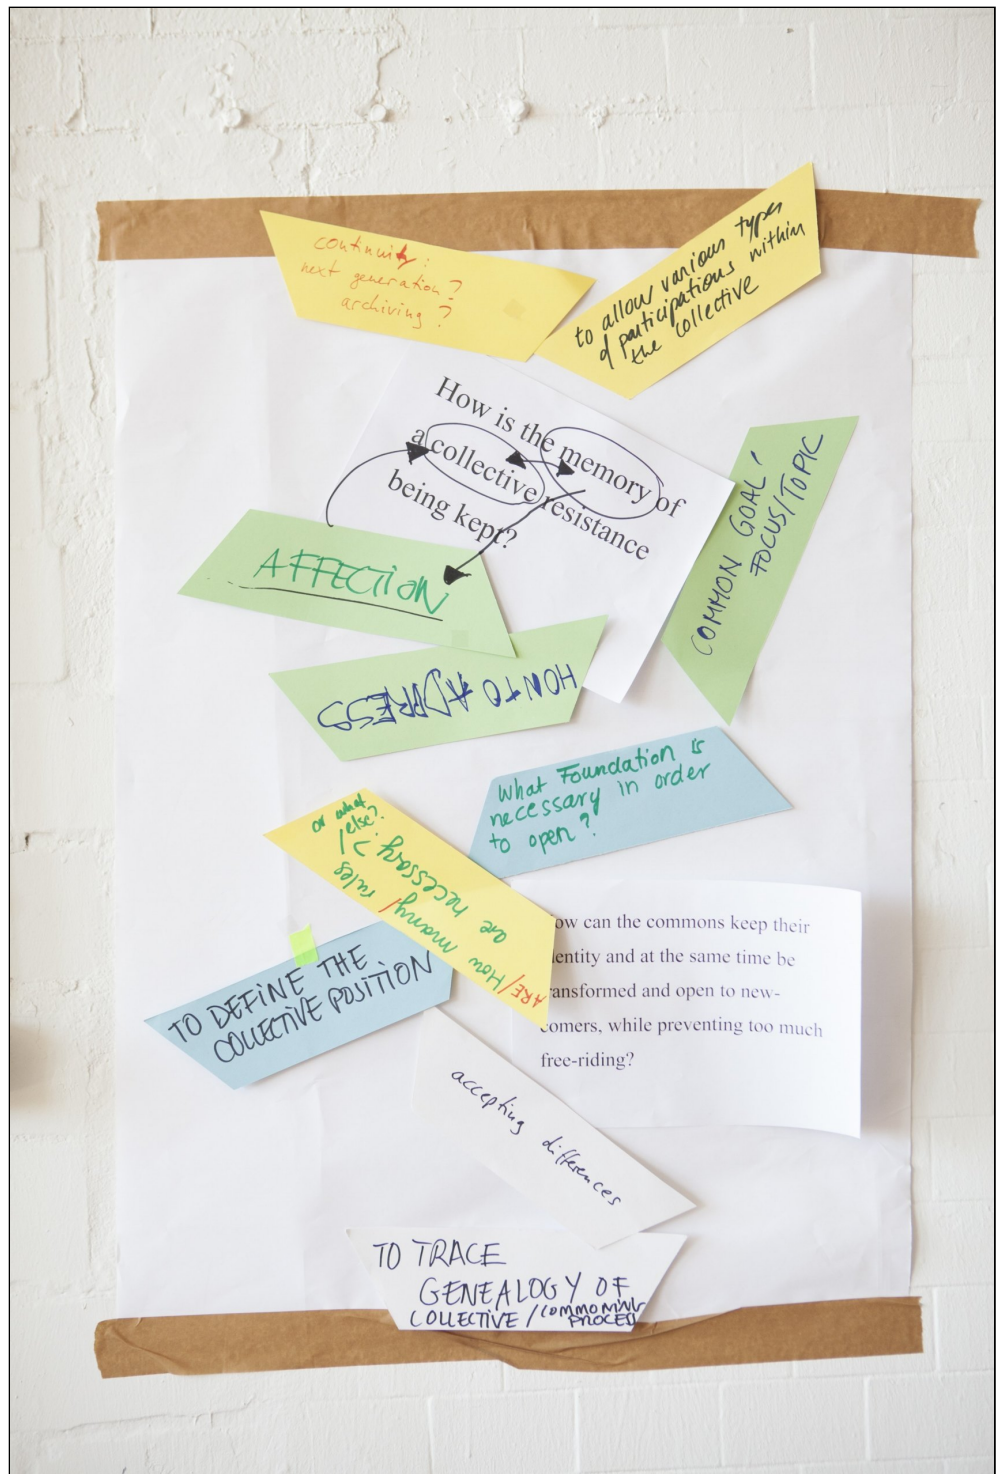 continuity:
next generation?
archiving?
to allow various types
of participations within
the collective
How is the memory of
a collective resistance
being kept?
COMMON GOAL /
FOCUS/TOPIC
AFFECTION
HOW TO ADRESS
What Foundation is
necessary in order
to open?
or what
else?
ARE/How many rules
are necessary?/
TO DEFINE THE
COLLECTIVE POSITION
ow can the commons keep their
entity and at the same time be
ansformed and open to new-
comers, while preventing too much
free-riding?
accepting differences
TO TRACE
GENEALOGY OF
COLLECTIVE/COMMONING
PROCESS